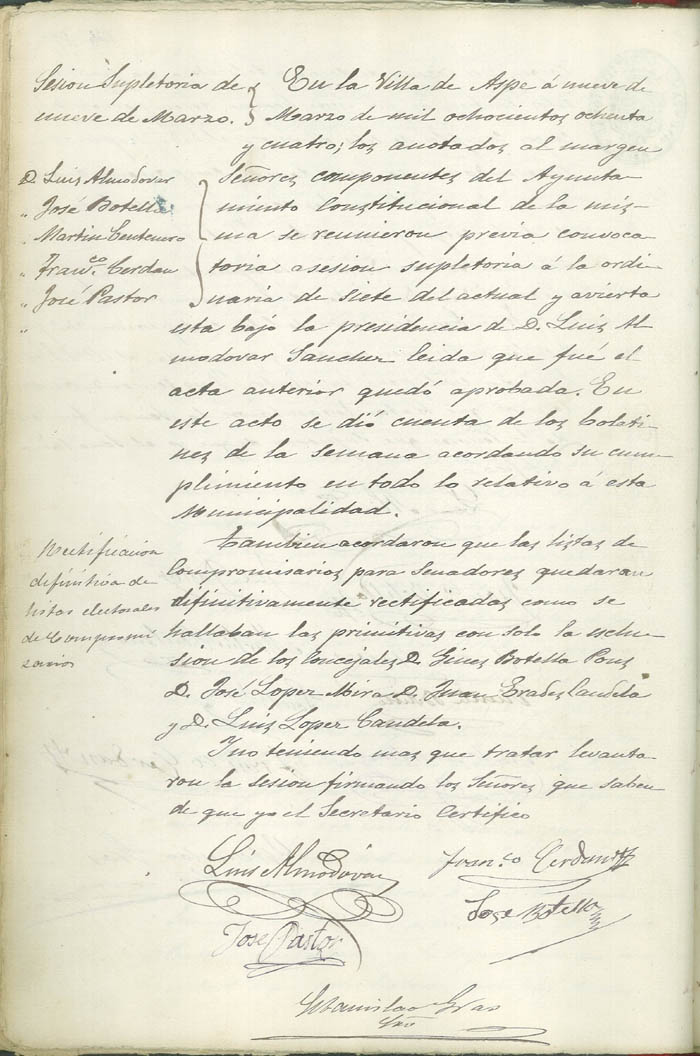 Sesion Supletoria de
nueve de Marzo.
En la Villa de Aspe á nueve de
Marzo de mil ochocientos ochenta
y cuatro; los anotados al margen
D. Luis Almodovar
" José Botella
" Martin Centenero
" Franco. Cerdan
" José Pastor
"
Señores componentes del Ayunta-
miento Constitucional de la mis-
ma se reunieron previa convoca-
toria a sesion supletoria á la ordi-
naria de siete del actual y avierta
esta bajo la presidencia de D. Luis Al
modovar Sanchez leida que fué el
acta anterior quedó aprobada. En
este acto se dió cuenta de los boleti-
nes de la semana acordando su cum-
plimiento en todo lo relativo á esta
Municipalidad.
Rectificacion
difinitiva de
listas electorales
de Compromi
sarios
Tambien acordaron que las listas de
Compromisarios para Senadores quedaran
difinitivamente rectificadas como se
hallaban las primitivas con solo la esclu-
sion de los Concejales D. Gines Botella Pons
D. José Lopez Mira D. Juan Erades Candela
y D. Luis Lopez Candela.
Y no teniendo mas que tratar levanta-
ron la sesion firmando los Señores que saben
de que yo el Secretario Certifico
Luis Almodóvar
Franco Cerdan
José Botella
José Pastor
Estanislao Gras
Srio